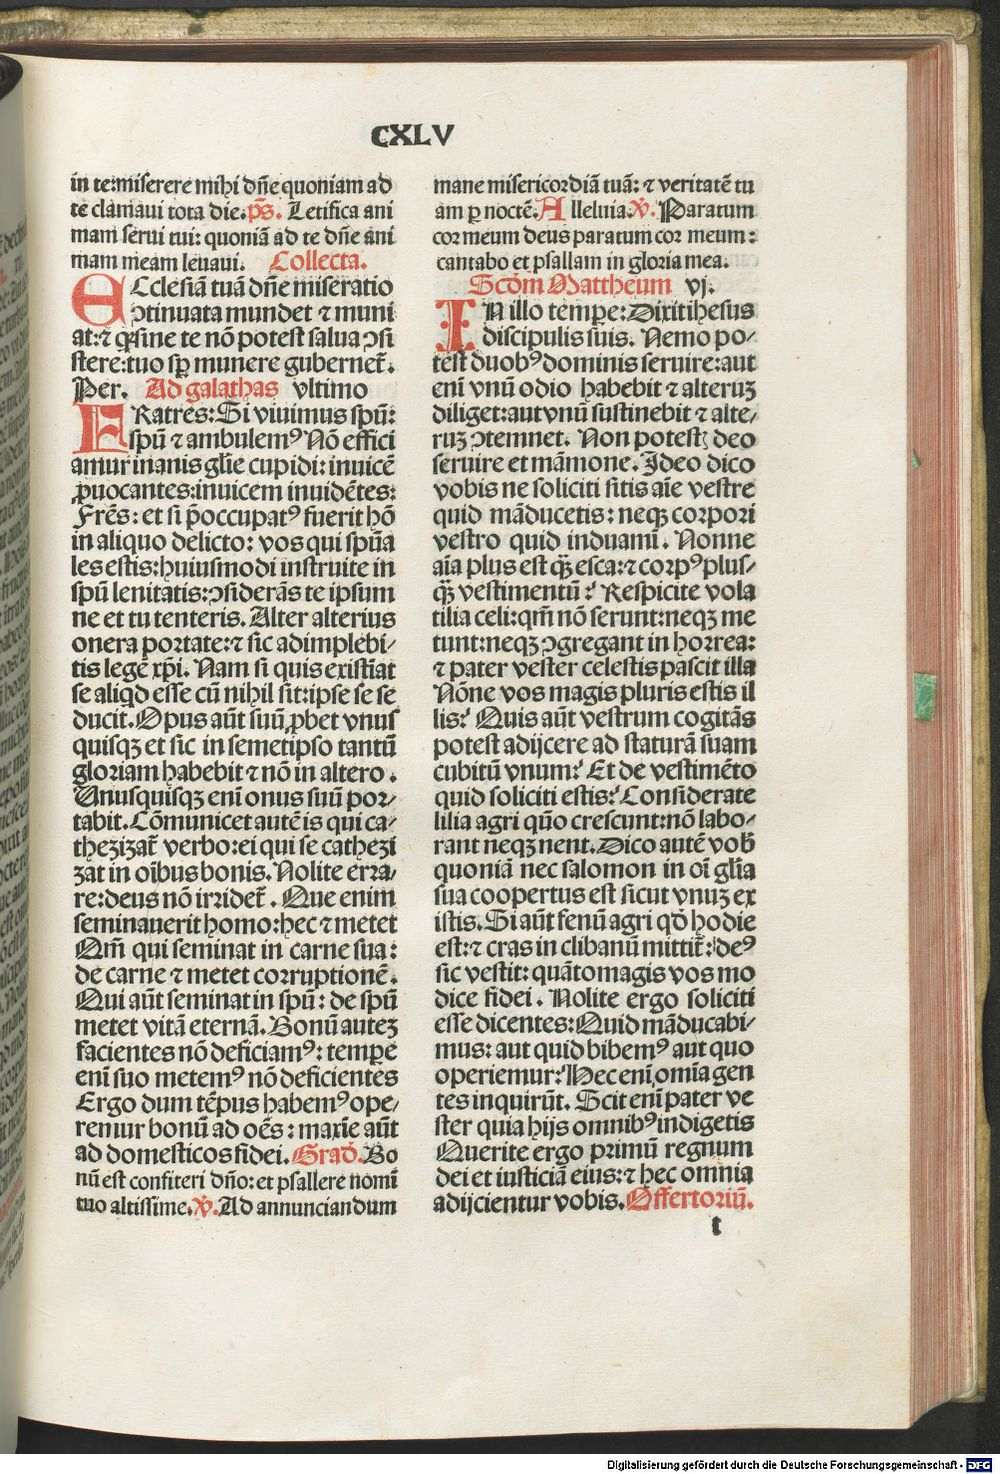 CXLV
in te:miserere mihi dñe quoniam ad
te clamaui tota die. ps̄. Letifica ani
mam serui tui: quoniā ad te dñe ani
mam meam leuaui. Collecta.
ECclesiā tuā dñe miseratio
ↄtinuata mundet ⁊ muni
at:⁊ q̄ sine te nō potest salua ↄsi/
stere:tuo sp̄ munere gubernet̄.
Per. Ad galathas vltimo
FRatres: Si viuimus spū:
spū ⁊ ambulemꝰ Nō effici
amur inanis gl̄ie cupidi: inuicē
ꝓuocantes:inuicem inuidētes:
Frēs: et si p̄occupatꝰ fuerit hō
in aliquo delicto: vos qui spūa
les estis:huiusmodi instruite in
spū lenitatis:ↄsiderās te ipsum
ne et tu tenteris. Alter alterius
onera portate:⁊ sic adimplebi/
tis legē xp̄i. Nam si quis existīat
se aliqd esse cū nihil sit:ipse se se
ducit. Opus aūt suū ꝓbet vnus
quisqꝫ et sic in semetipso tantū
gloriam habebit ⁊ nō in altero.
Vnusquisqꝫ enī onus suū por/
tabit. Cōmunicet autē is qui ca/
thezizat̄ verbo:ei qui se cathezi
zat in oībus bonis. Nolite erra/
re:deus nō irridet̄. Que enim
seminauerit homo:hec ⁊ metet
Qm̄ qui seminat in carne sua:
de carne ⁊ metet corruptionē.
Qui aūt seminat in spū: de spū
metet vitā eternā. Bonū autez
facientes nō deficiamꝰ: temꝑe
enī suo metemꝰ nō deficientes
Ergo dum tēpus habemꝰ ope/
remur bonū ad oēs: maxīe aūt
ad domesticos fidei. Grad̄. Bo
nū est confiteri dn̄o: et psallere nomī
tuo altissime. v̄. Ad annunciandum
mane misericordiā tuā: ⁊ veritatē tu
am ꝑ noctē. Alleluia. v̄. Paratum
cor meum deus paratum cor meum:
cantabo et psallam in gloria mea.
Scd̄m Mattheum vj.
IN illo temꝑe: Dixit ihesus
discipulis suis. Nemo po/
test duobꝰ dominis seruire:aut
enī vnū odio habebit ⁊ alteruꝫ
diliget:aut vnū sustinebit ⁊ alte/
ruꝫ ↄtemnet. Non potestꝭ deo
seruire et māmone. Ideo dico
vobis ne soliciti sitis aīe vestre
quid māducetis: neqꝫ corpori
vestro quid induamī. Nonne
aīa plus est qꝫ̄ esca:⁊ corpꝰ plus/
qꝫ̄ vestimentū? Respicite vola
tilia celi:qm̄ nō serunt:neqꝫ me
tunt:neqꝫ ↄgregant in horrea:
⁊ pater vester celestis pascit illa
Nōne vos magis pluris estis il
lis? Quis aūt vestrum cogitās
potest adijcere ad staturā suam
cubitū vnum? Et de vestimēto
quid soliciti estis? Considerate
lilia agri quō crescunt:nō labo/
rant neqꝫ nent. Dico autē vob̄
quoniā nec salomon in oī gl̄ia
sua coopertus est sicut vnuꝫ ex
istis. Si aūt fenū agri qd̄ hodie
est:⁊ cras in clibanū mittit̄: deꝰ
sic vestit: quātomagis vos mo
dice fidei. Nolite ergo soliciti
esse dicentes: Quid māducabi/
mus: aut quid bibemꝰ aut quo
operiemur? Hec enī omīa gen
tes inquirūt. Scit enī pater ve
ster quia hijs omnibꝰ indigetis
Querite ergo primū regnum
dei et iusticiā eius:⁊ hec omnia
adijcientur vobis. Offertoriū.
t
Digitalisierung gefördert durch die Deutsche Forschungsgemeinschaft - DFG